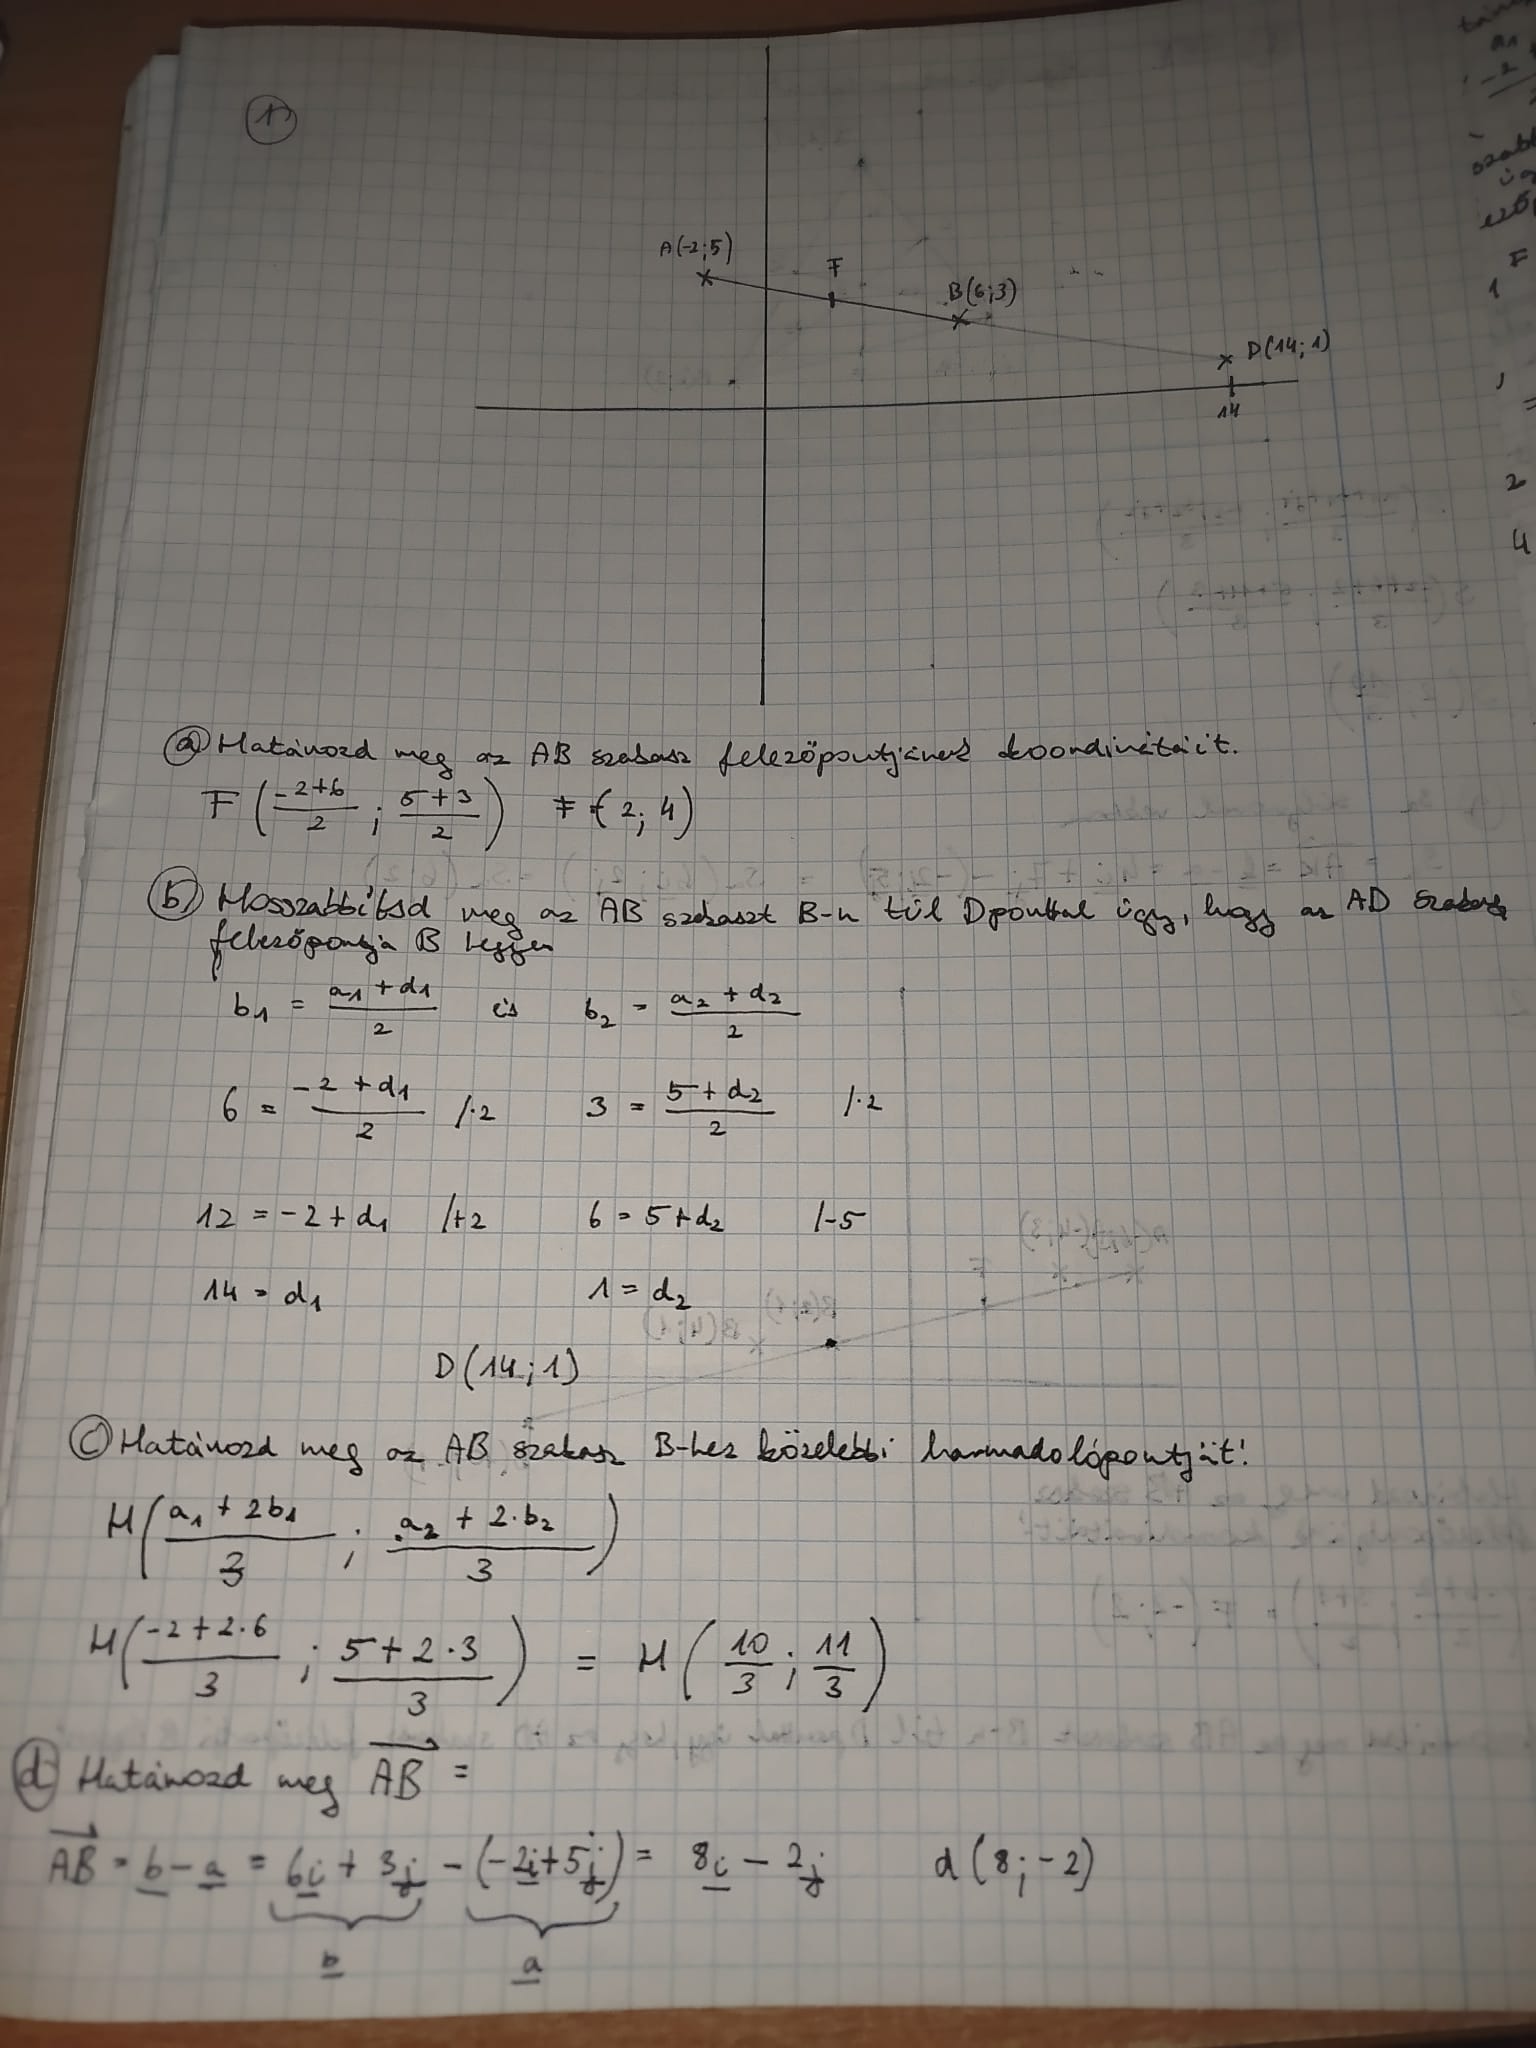 1
A(-2;5)
F
B(6;3)
D(14;1)
14
a) Határozd meg az AB szakasz felezőpontjának koordinátáit.
F (\frac{-2+6}{2} ; \frac{5+3}{2}) F (2; 4)
b) Hosszabbítsd meg az AB szakaszt B-n túl D ponttal úgy, hogy az AD szakasz
felezőpontja B legyen
b₁ = \frac{a₁ + d₁}{2} és b₂ = \frac{a₂ + d₂}{2}
6 = \frac{-2 + d₁}{2} /·2 3 = \frac{5 + d₂}{2} /·2
12 = -2 + d₁ /+2 6 = 5 + d₂ /-5
14 = d₁ 1 = d₂
D(14;1)
c) Határozd meg az AB szakasz B-hez közelebbi harmadolópontját!
H(\frac{a₁ + 2b₁}{3} ; \frac{a₂ + 2·b₂}{3})
H(\frac{-2+2·6}{3} ; \frac{5+2·3}{3}) = H(\frac{10}{3} ; \frac{11}{3})
d) Határozd meg \overrightarrow{AB} =
\overrightarrow{AB} = b - a = 6i + 3j - (-2i+5j) = 8i - 2j d(8;-2)
b a